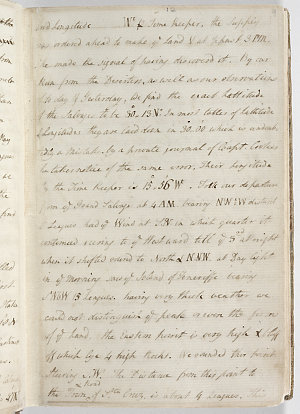 12
and Longitude Wt ye Time keeper, the Supply
was ordered ahead to make ye Land & at ½ past 3 P.M.
he made the signal of having discovered it. By our
Run from the Desertas, as well as our observation
to day & Yesterday, We find the exact Lattitude
of the Salvage to be 30°.13' N. In most tables of Lattitude
& Longitudes they are laid down in 30.00 which is undoubt-
edly a Mistake. In a private journal of Capt. Cookes
he takes notice of the same error. Their Longitude
by the Time keeper is 15°.56' W. Took our departure
from ye Grand Salvage at 4 AM. bearing NWbW distant
Leagues had ye Wind at SW in which quarter it
continued veering to ye Westward till ye 3d at night
when it shifted round to North & NNW. at Day light
in ye Morning saw ye Island of Teneriffe bearing
WbW 13 Leagues. having very thick weather we
could not distinguish ye peak or even the form
of ye land. the Eastern point is very high & bluff
off which lye 4 high Rocks. We rounded this point
steering S.W. The Distance from this point to
the Town & road of Sta Cruz, is about 4 Leagues. this